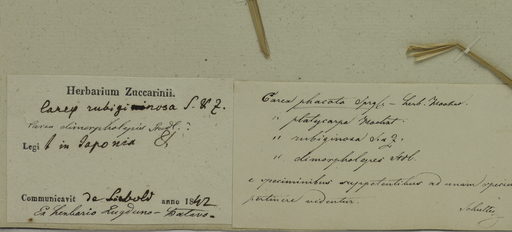 Herbarium Zuccarinii.
Carex rubiginosa S. & Z.
Carex dimorpholepis Stdl. ?
Legi in Japonia
Communicavit de Siebold anno 1842
Ex herbario Lugduno-Batavo-
Carex phacota Sprgl. - herb.
" platycarpa
" rubiginosa S & Z.
" dimorpholepis Stdl.
e speciminibus suppetentibus ad unam speciem
pertinere videntur.